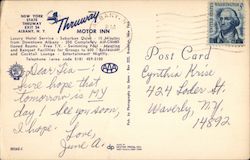 NEW YORK
STATE
THRUWAY
EXIT 24
ALBANY, N. Y.
Thruway
MOTOR INN
Luxury Hotel Service - Suburban Quiet - 10 Minutes
from Downtown Albany - 250 Completely Air-Conditioned
Rooms - Free T.V. - Swimming Pool - Meeting
and Banquet Facilities for Groups to 600 - Restaurant
and Cocktail Lounge - Entertainment Nightly
Telephone (area code 518) 459-3100
Dear Tea—!
Sure hope that
tomorrow is MY
day! See you soon,
I hope. Love,
June A.
AAA
Post Card
Cynthia Krise
424 Loder St.
Waverly, NY
14892